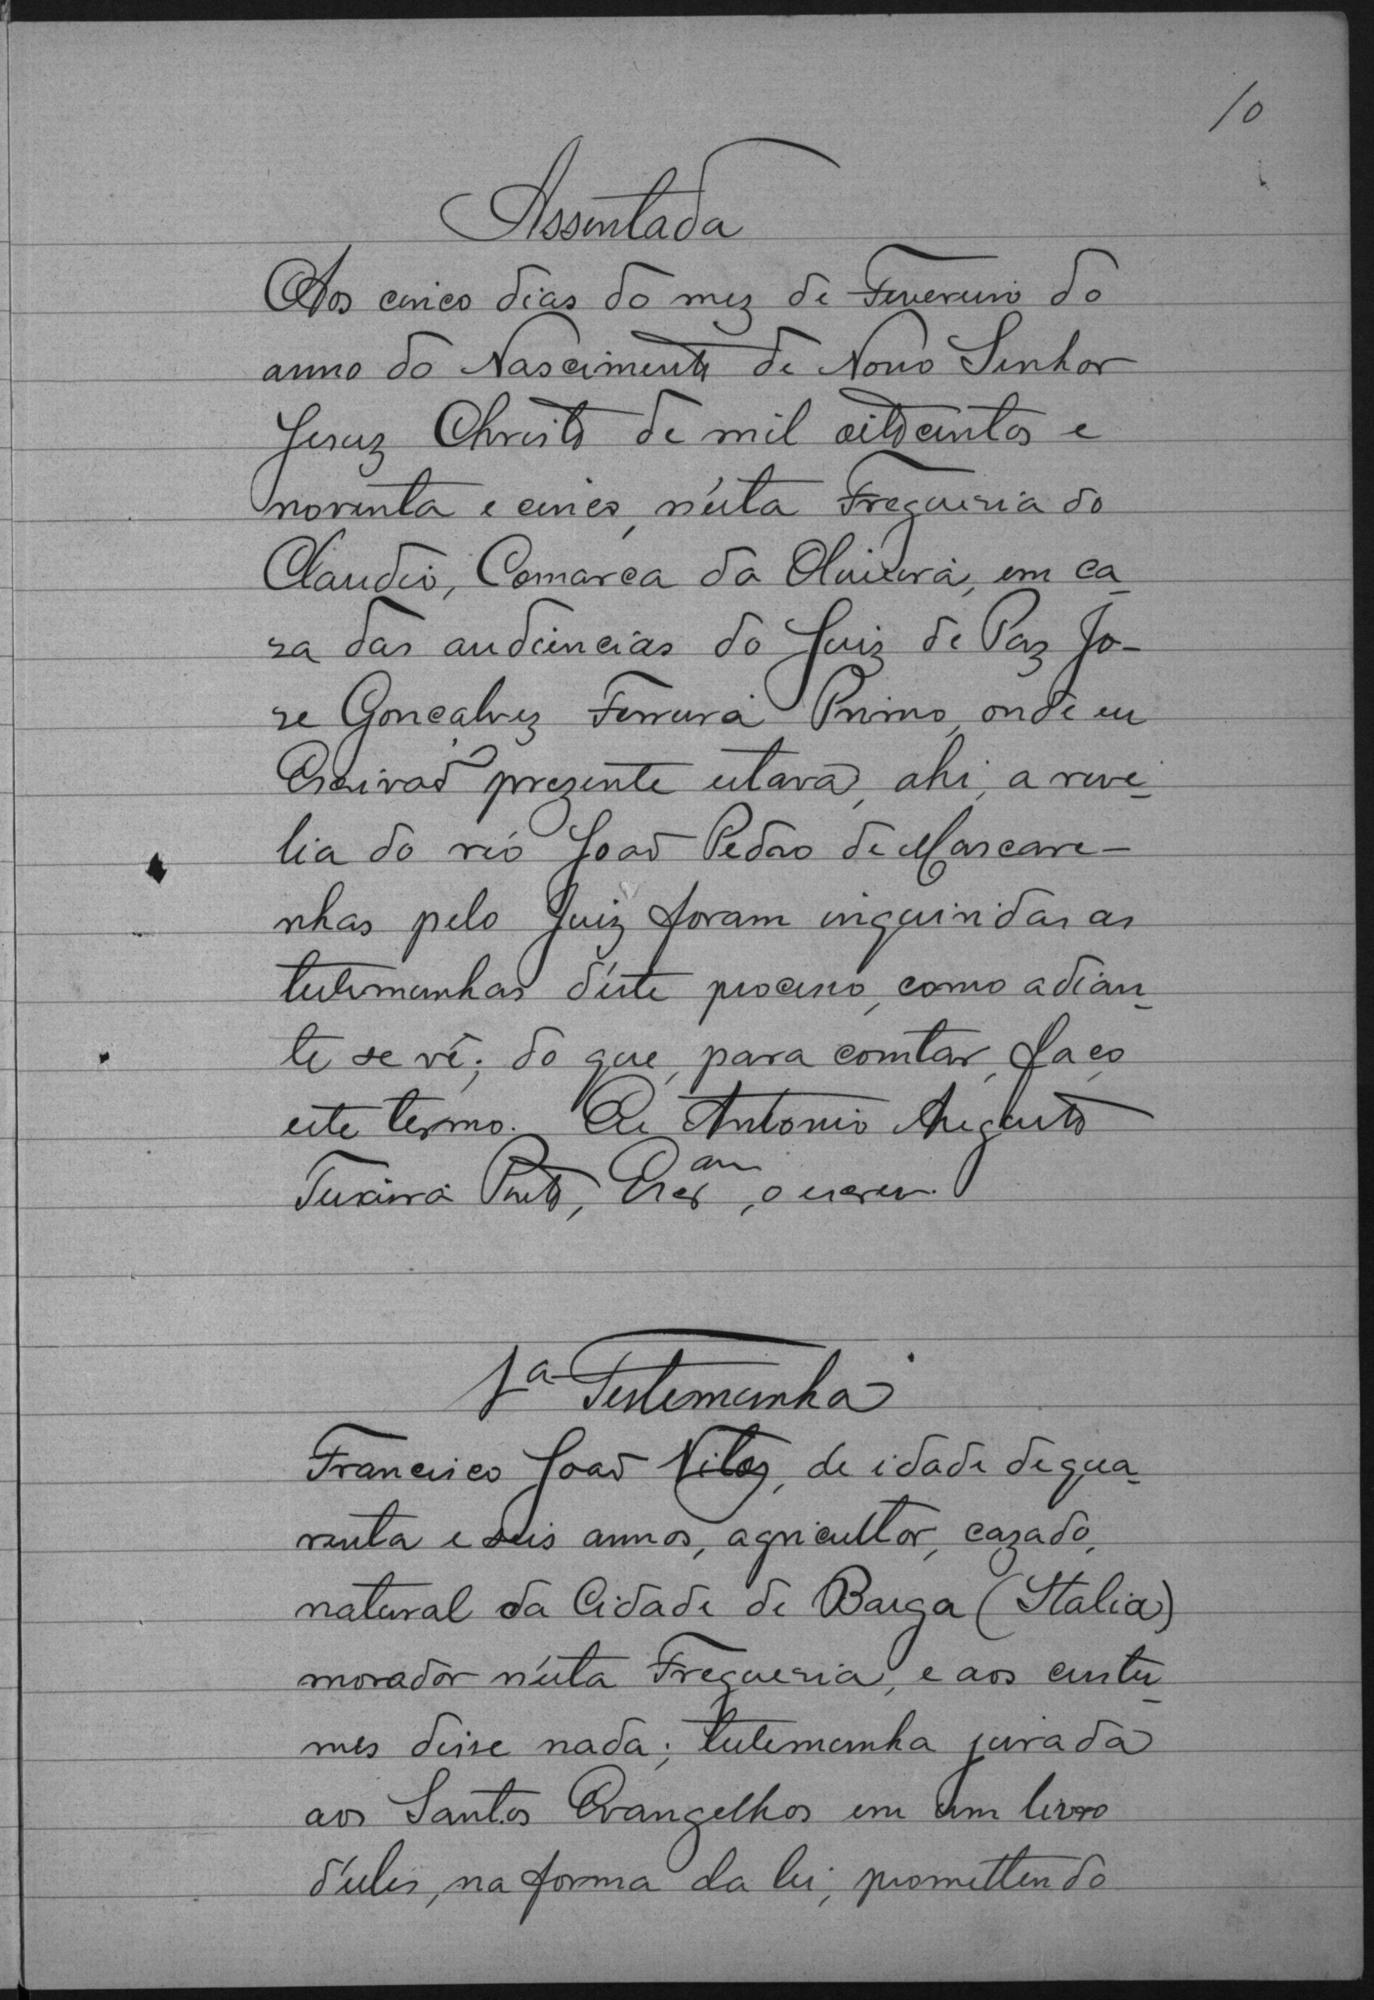 10
Assentada
Aos cinco dias do mez de Fevereiro do
anno do Nascimento de Nosso Senhor
Jesuz Christo de mil oitocentos e
noventa e cinco, n'ésta Freguezia do
Claudio, Comarca da Oliveira, em ca-
za das audiencias do Juiz de Paz Jo-
ze Gonçalvez Ferreira Primo, onde eu
Escrivaõ prezente estava, ahi, a reve-
lia do réo Joaõ Pedro de Mascare-
nhas pelo Juiz foram inquiridas as
testemunhas d'éste processo, como adian-
te se vê; do que, para constar, faço
este termo. Eu Antonio Augusto
Teixeira Pinto, Escram, o escrevi.
1a Testemunha
Francisco Joaõ , de idade de qua-
renta e seis annos, agricultor, cazado,
natural da Cidade de Barga (Italia)
morador n'ésta Freguezia, e aos custu-
mes disse nada; testemunha jurada
aos Santos Evangelhos em um livro
d'éles, na forma da lei, promettendo